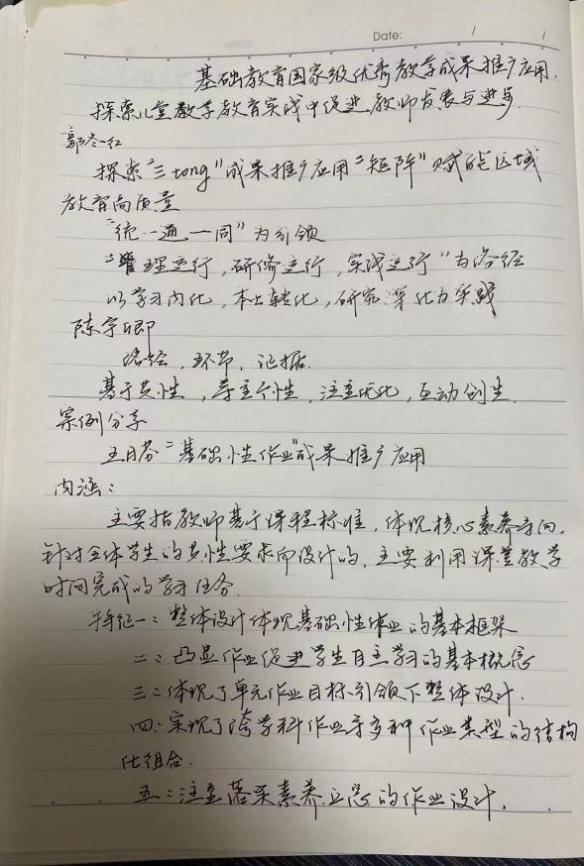 Date: / /
基础教育国家级优秀教学成果推广应用.
探索儿童数学教育实践中促进教师发展与进步.
郭冬红
探索"三tong"成果推广应用"矩阵"赋能区域
教育高质量
"统一通一同"为引领
"管理先行,研修先行,实践先行"为路径
以学习内化,本土转化,研究深化为实践
陈宇卿
路径,环节,证据.
基于共性,尊重个性,注重优化,互动创生.
案例分享
"基础性作业"成果推广应用
内涵:
主要指教师基于课程标准,体现核心素养方向,
针对全体学生的共性要求而设计的,主要利用课堂教学
时间完成的学习任务.
特征一:整体设计体现基础性作业的基本框架
二:凸显作业促进学生自主学习的基本概念
三:体现了单元作业目标引领下整体设计.
四:实现了跨学科作业等多种作业类型的结构
化组合.
五:注重落实素养立意的作业设计.